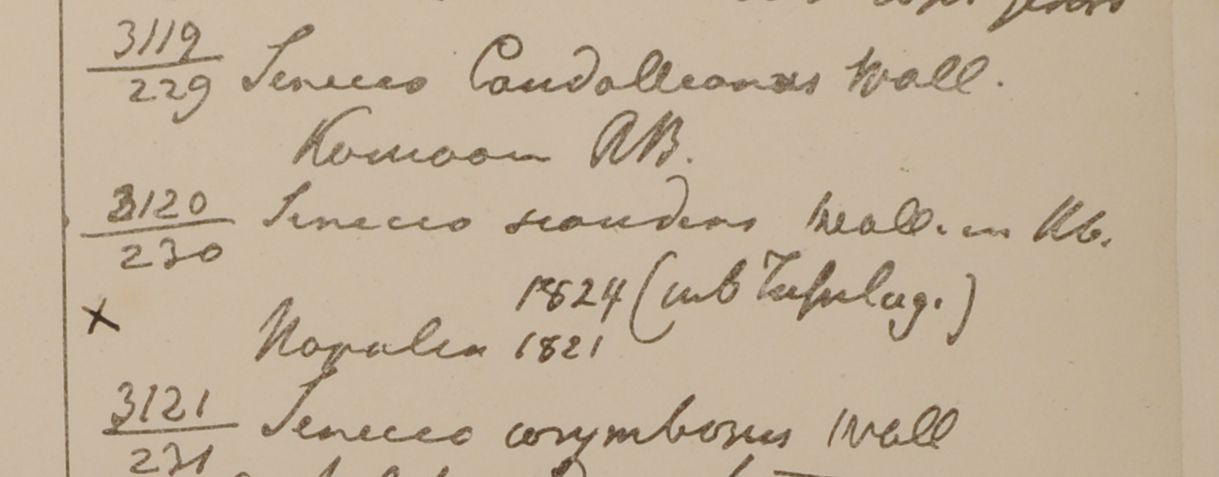 3119
229 Senecio Candolleanus Wall.
Kumaon RB.
3120
230 Senecio scandens Wall. in Hb.
1824 (sub Tussilag.)
x Napalia 1821
3121
231 Senecio corymbosus Wall